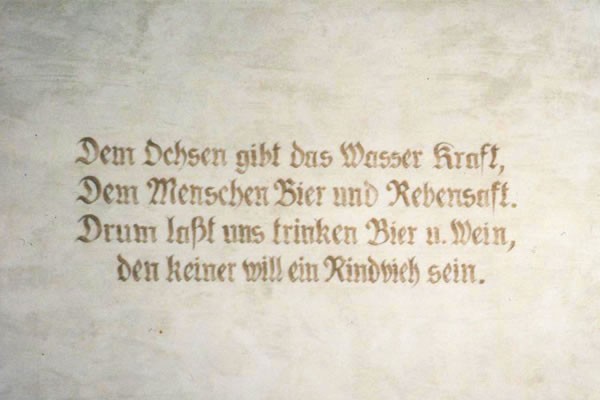 Dem Ochsen gibt das Wasser Kraft,
Dem Menschen Bier und Rebensaft.
Drum laßt uns trinken Bier u. Wein,
den keiner will ein Rindvieh sein.